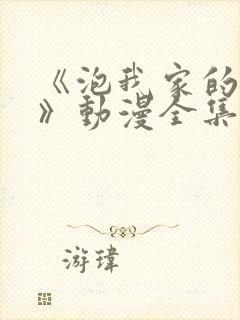 《泡我家的
》動漫全集
游瑋